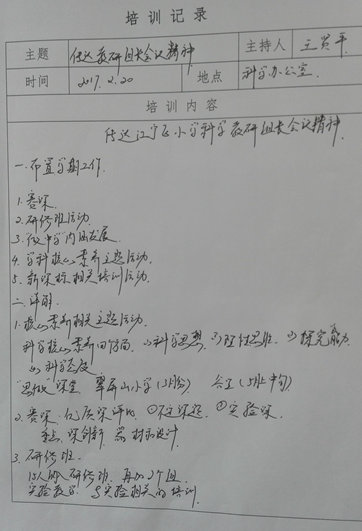 培训记录
主题 传达教研组长会议精神 主持人 王贤平
时间 2017.2.20 地点 科学办公室
培训内容
传达江宁区小学科学教研组长会议精神
一.布置学期工作
1.赛课
2.研修班活动
3.做中学内涵发展
4.学科核心素养主题活动
5.新课标相关培训活动
二.详解
1.核心素养相关主题活动
科学核心素养四个方面 (1)科学思想 (2)理性思维 (3)探究能力
(4)科学态度
思维 课堂 翠屏山小学
2.赛课:优质课评比 ①不定课题 ②实验课
重点 课创新 器材和设计
3.研修班
15人的研修班 再加2个组
实验教学 与实验相关的培训